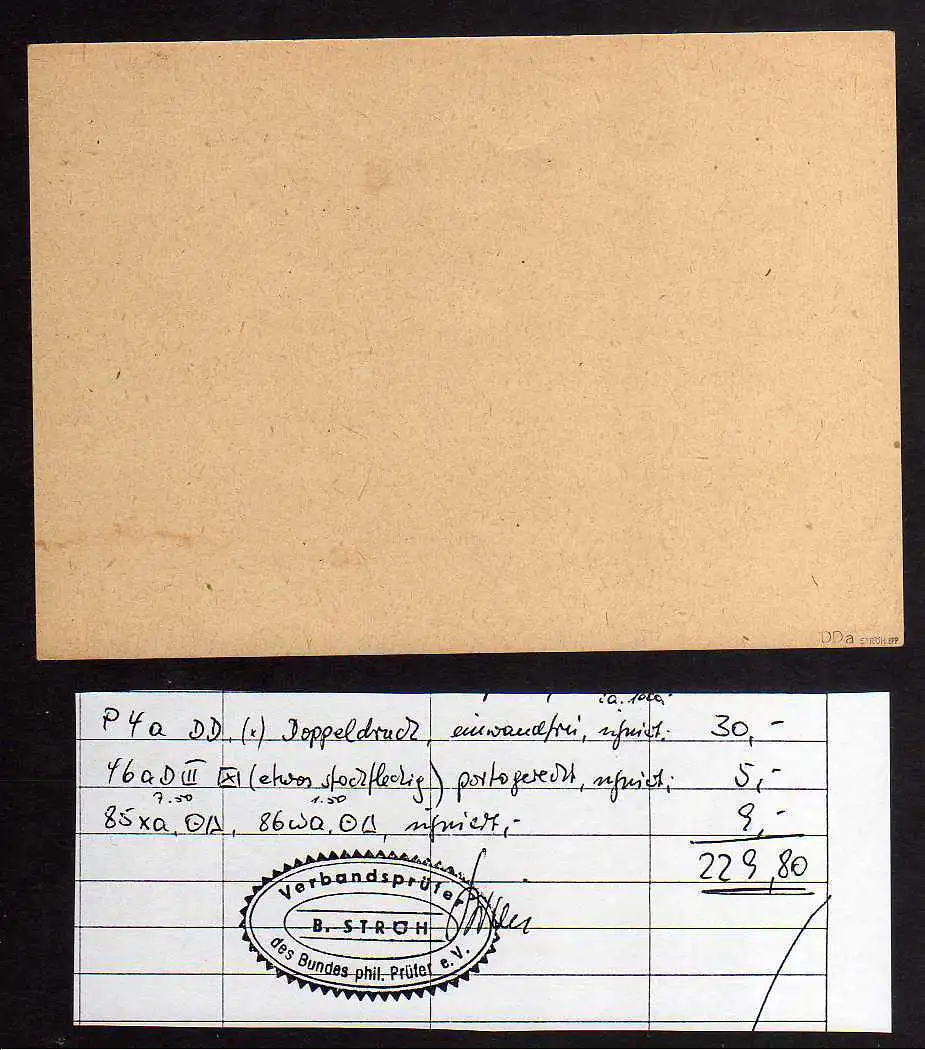 DDa STRÖH BPP
P 4a DD, (x) Doppeldruck, einwandfrei, signiert. 30,-
46aD III (etwas stockfleckig) portogerecht, signiert; 5,-
7.50 1.50
85xa, ⊙△, 86wa, ⊙△, signiert,- 9,-
229,80
Verbandsprüfer
B. STRÖH
des Bundes phil. Prüfer e.V.